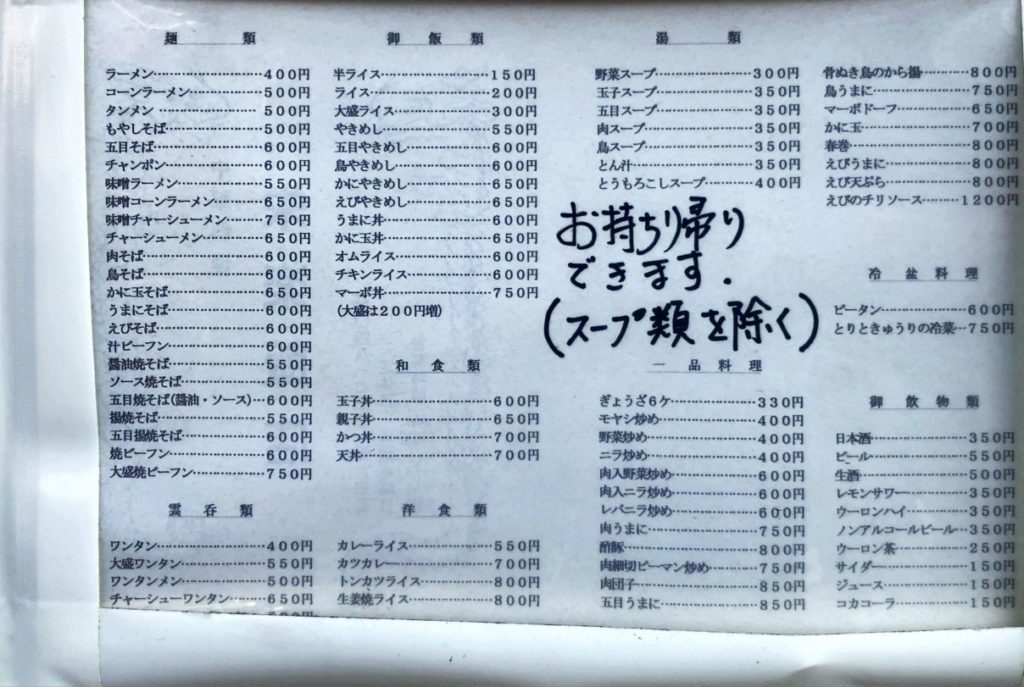 麺類
ラーメン……………400円
コーンラーメン……………500円
タンメン……………500円
もやしそば……………500円
五目そば……………600円
チャンポン……………600円
味噌ラーメン……………550円
味噌コーンラーメン……………650円
味噌チャーシューメン……………750円
チャーシューメン……………650円
肉そば……………650円
鳥そば……………650円
かに玉そば……………650円
うまにそば……………600円
えびそば……………650円
汁ビーフン……………600円
醤油焼そば……………550円
ソース焼そば……………550円
五目焼そば(醤油・ソース)…600円
揚焼そば……………550円
五目揚焼そば……………600円
焼ビーフン……………600円
大盛焼ビーフン……………750円
雲呑類
ワンタン……………400円
大盛ワンタン……………550円
ワンタンメン……………500円
チャーシューワンタン……………650円
御飯類
半ライス……………150円
ライス……………200円
大盛ライス……………300円
やきめし……………550円
五目やきめし……………600円
鳥やきめし……………600円
かにやきめし……………650円
えびやきめし……………650円
うまに丼……………600円
かに玉丼……………650円
オムライス……………600円
チキンライス……………600円
マーボ丼……………750円
(大盛は200円増)
和食類
玉子丼……………600円
親子丼……………650円
かつ丼……………700円
天丼……………700円
洋食類
カレーライス……………550円
カツカレー……………700円
トンカツライス……………800円
生姜焼ライス……………800円
湯類
野菜スープ……………300円
玉子スープ……………350円
五目スープ……………350円
肉スープ……………350円
鳥スープ……………350円
とん汁……………350円
とうもろこしスープ……………400円
お持ち帰り
できます.
(スープ類を除く)
一品料理
ぎょうざ6ケ……………330円
モヤシ炒め……………400円
野菜炒め……………400円
ニラ炒め……………400円
肉入野菜炒め……………600円
肉入ニラ炒め……………600円
レバニラ炒め……………600円
肉うまに……………750円
酢豚……………800円
肉細切ピーマン炒め……………750円
肉団子……………850円
五目うまに……………850円
骨ぬき鳥のから揚……………800円
鳥うまに……………750円
マーボドーフ……………650円
かに玉……………700円
春巻……………800円
えびうまに……………800円
えび天ぷら……………800円
えびのチリソース……………1200円
冷盆料理
ピータン……………600円
とりときゅうりの冷菜…750円
御飲物類
日本酒……………350円
ビール……………550円
生酒……………500円
レモンサワー……………350円
ウーロンハイ……………350円
ノンアルコールビール…350円
ウーロン茶……………250円
サイダー……………150円
ジュース……………150円
コカコーラ……………150円